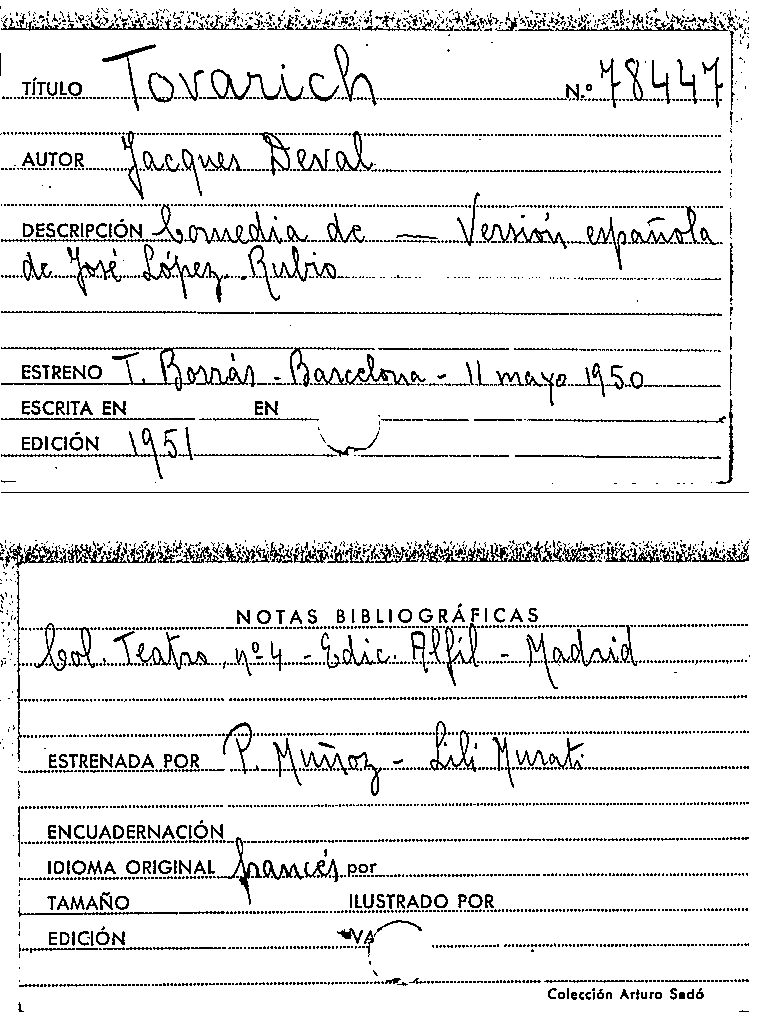 TÍTULO Tovarich N.º 78447
AUTOR Jacques Deval
DESCRIPCIÓN Comedia de — Versión española
de José López Rubio
ESTRENO T. Borrás - Barcelona - 11 mayo 1950
ESCRITA EN EN
EDICIÓN 1951
NOTAS BIBLIOGRÁFICAS
Col. Teatro, nº 4 - Edic. Alfil - Madrid
ESTRENADA POR P. Muñoz - Lili Murati
ENCUADERNACIÓN
IDIOMA ORIGINAL francés por
TAMAÑO ILUSTRADO POR
EDICIÓN
Colección Arturo Sedó